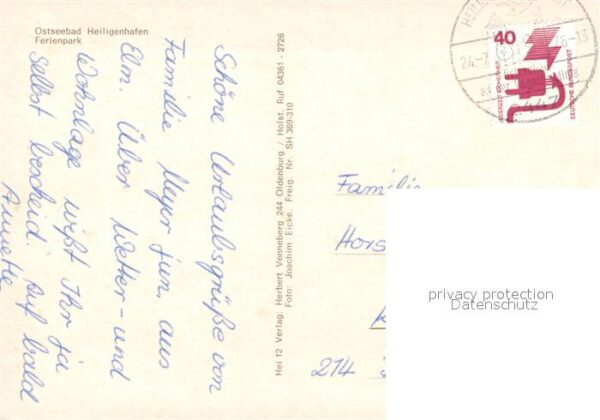 Ostseebad Heiligenhafen
Ferienpark
Schöne Urlaubsgrüße von
Familie Meyer jun. aus
Elm. Über Wetter- und
Wohnlage wißt Ihr ja
selbst bescheid. Auf bald
Annette
Hei 12 Verlag: Herbert Venneberg 244 Oldenburg / Holst. Ruf 04361 - 2726
Foto: Joachim Eicke, Freig. Nr. SH 389-310
40
JEDERZEIT SICHERHEIT
DEUTSCHE BUNDESPOST
24.-7.
-13
Familie
Hors
214
privacy protection
Datenschutz